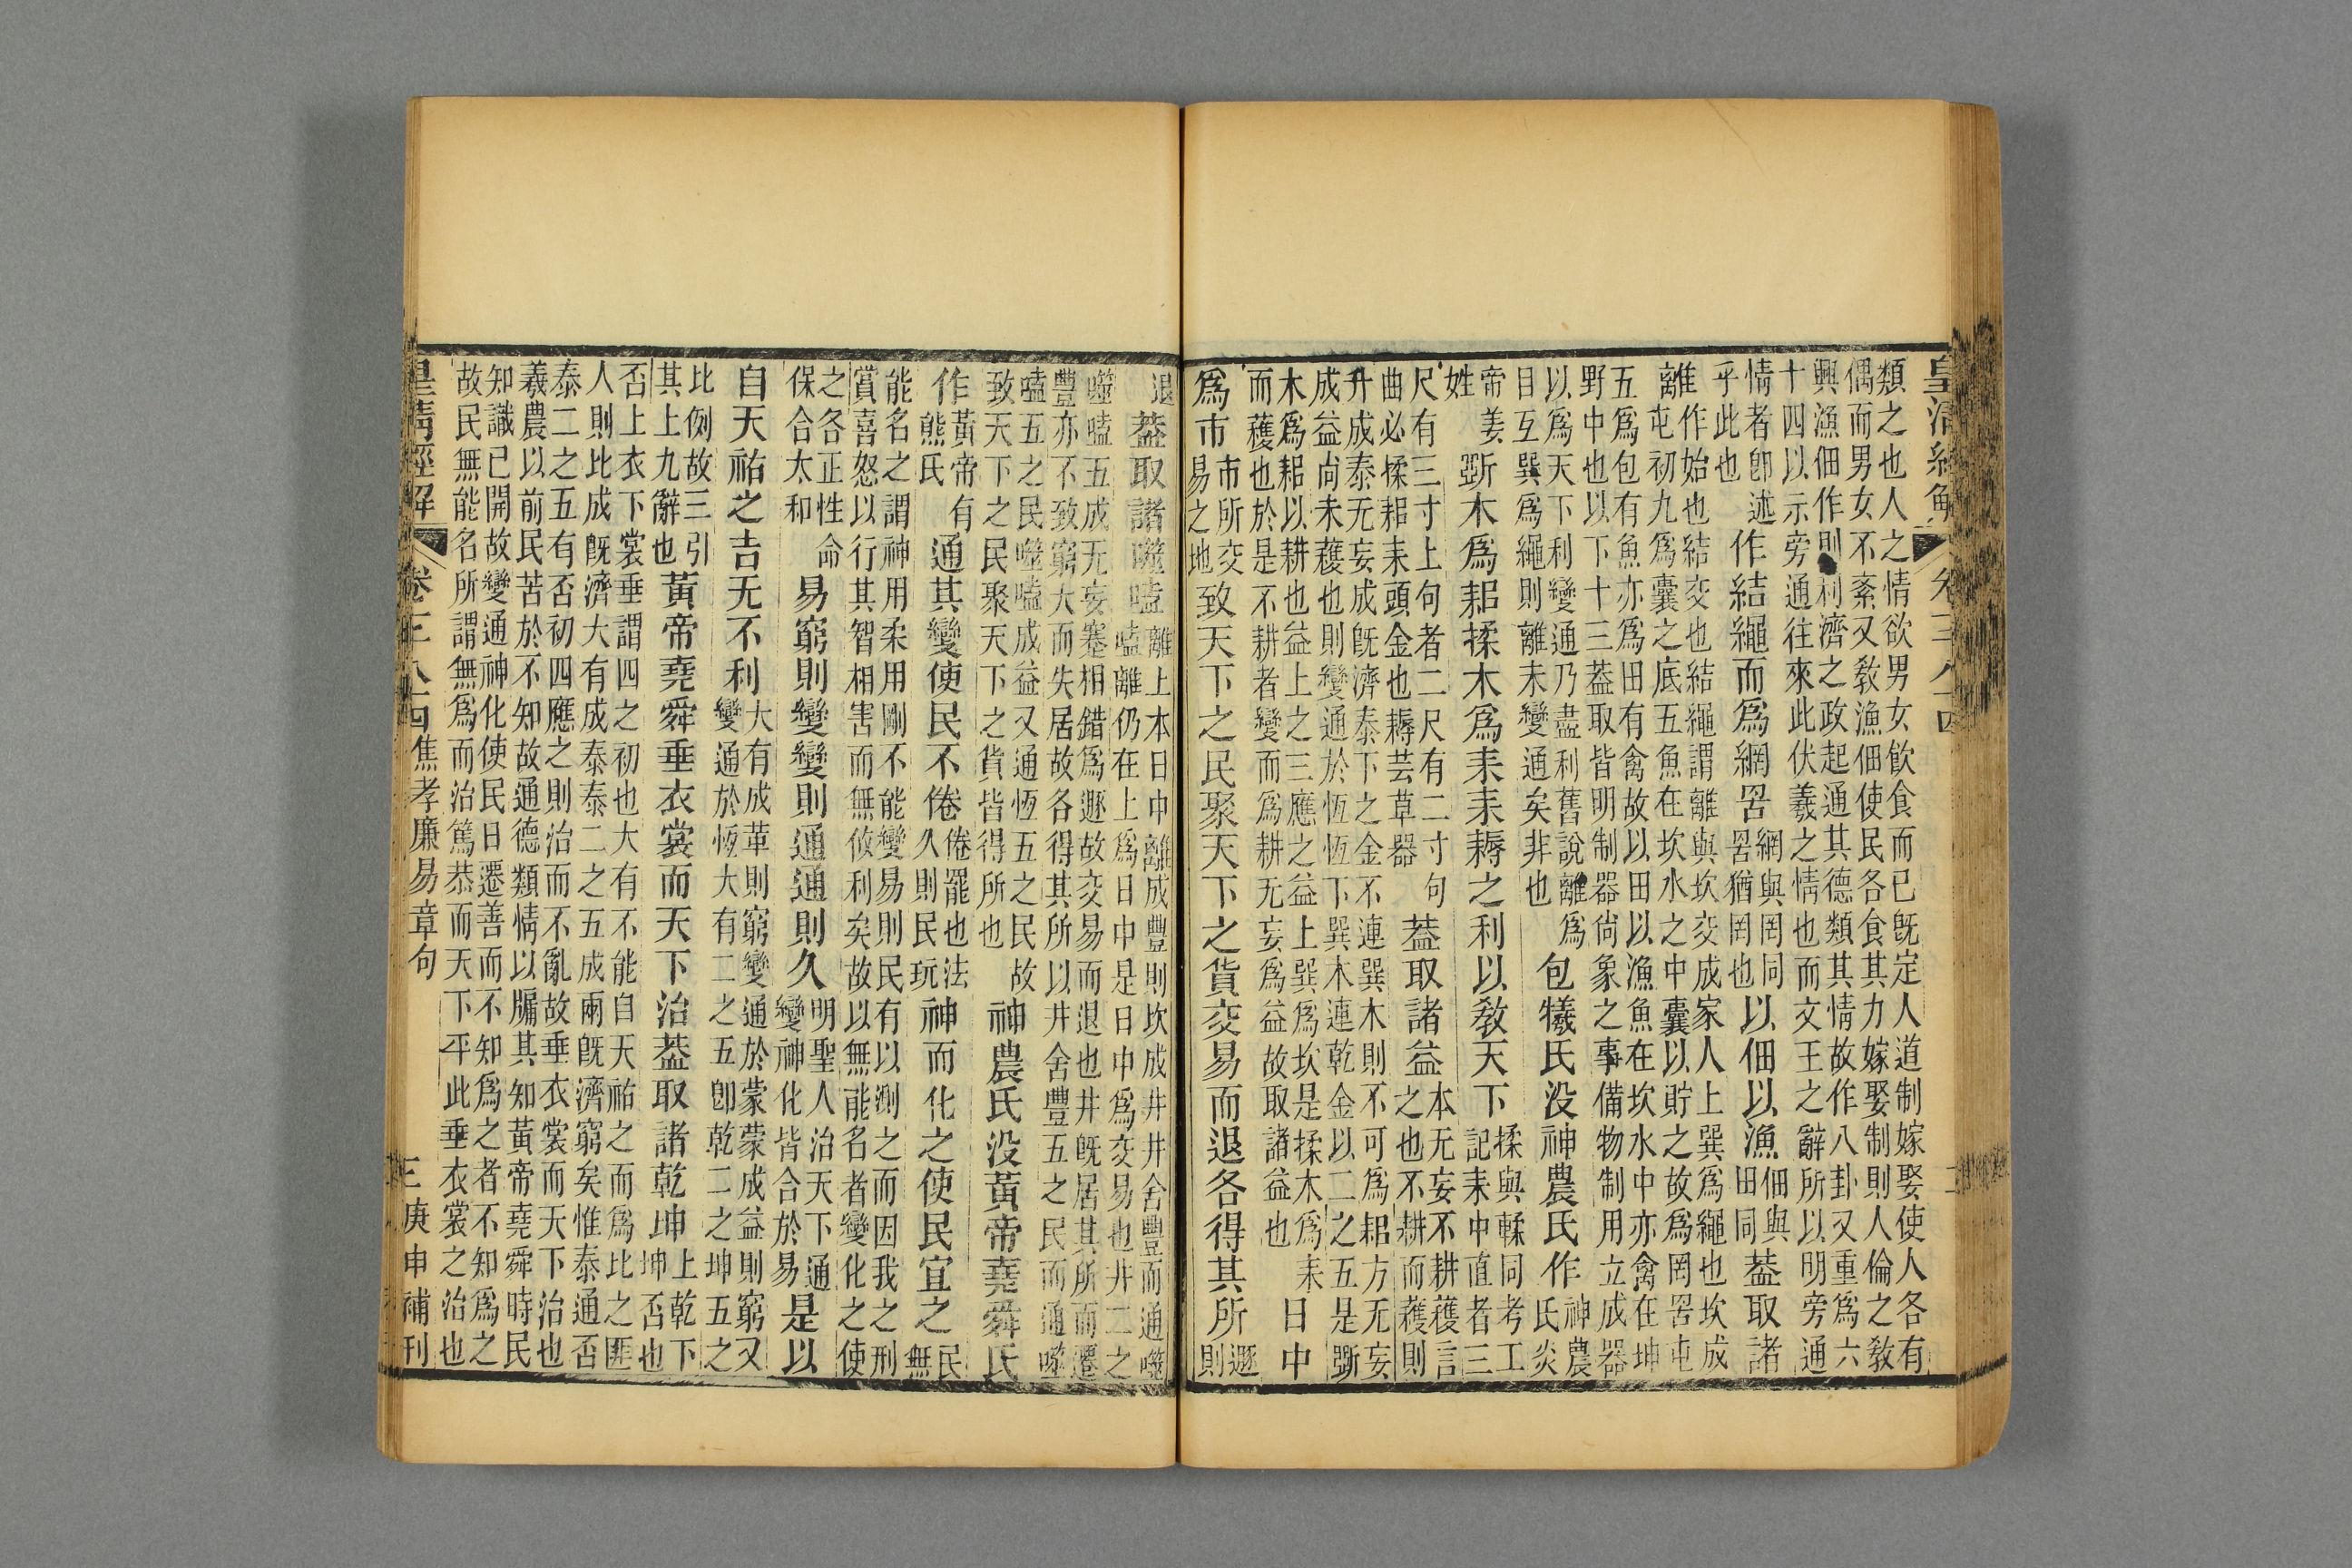 皇清經解 卷千八十四 二
類之也人之情欲男女飲食而已既定人道制嫁娶使人各有
偶而男女不紊又敎漁佃使民各食其力嫁娶制則人倫之敎
興漁佃作則利濟之政起通其德類其情故作八卦又重爲六
十四以示旁通往來此伏羲之情也而文王之辭所以明旁通
情者卽述乎此也作結繩而爲網罟網與罔同罟猶罔也以佃以漁佃與田同葢取諸
離作始也結交也結繩謂離與坎交成家人上巽爲繩也坎成屯初九爲囊之底五魚在坎水之中囊以貯之故爲罔罟屯
五爲包有魚亦爲田有禽故以田以漁魚在坎水中亦禽在坤
野中也以下十三葢取皆明制器尙象之事備物制用立成器
以爲天下利變通乃盡利舊說離爲目互巽爲繩則離未變通矣非也包犧氏没神農氏作神農氏炎
帝姜姓斲木爲耜揉木爲耒耒耨之利以敎天下揉與輮同考工記耒中直者三
尺有三寸上句者二尺有二寸句曲必揉耜耒頭金也耨芸草器葢取諸益本无妄不耕穫言之也不耕而穫則
升成泰无妄成旣濟泰下之金不連巽木則不可爲耜方无妄
成益尙未穫也則變通於恆恆下巽木連乾金以二之五是斲
木爲耜以耕也益上之三應之益上巽爲坎是揉木爲耒而穫也於是不耕者變而爲耕无妄爲益故取諸益也日中
爲市市所交易之地致天下之民聚天下之貨交易而退各得其所遯則
退葢取諸噬嗑離上本日中離成豐則坎成井井舍豐而通噬嗑離仍在上爲日中是日中爲交易也井二之
噬嗑五成无妄塞相錯爲遯故交易而退也井旣居其所而遷
豐亦不致窮大而失居故各得其所以井舍豐五之民而通噬
嗑五之民噬嗑成益又通恆五之民故致天下之民聚天下之貨皆得所也神農氏没黃帝堯舜氏
作黃帝有熊氏通其變使民不倦倦罷也法久則民玩神而化之使民宜之民無
能名之謂神用柔用剛不能變易則民有以測之而因我之刑
賞喜怒以行其智相害而無攸利矣故以無能名者變化之使
之各正性命保合太和易窮則變變則通通則久明聖人治天下通變神化皆合於易是以
自天祐之吉无不利大有成革則窮變通於蒙蒙成益則窮又變通於恆大有二之五卽乾二之坤五之
比例故三引其上九辭也黃帝堯舜垂衣裳而天下治葢取諸乾坤上乾下坤否也
否上衣下裳垂謂四之初也大有不能自天祐之而爲比之匪
人則比成旣濟大有成泰泰二之五成兩旣濟窮矣惟泰通否
泰二之五有否初四應之則治而不亂故垂衣裳而天下治也
羲農以前民苦於不知故通德類情以牖其知黃帝堯舜時民
知識已開故變通神化使民日遷善而不知爲之者不知爲之
故民無能名所謂無爲而治篤恭而天下平此垂衣裳之治也
皇清經解 卷千八十四 焦孝廉易章句 三 庚申補刊